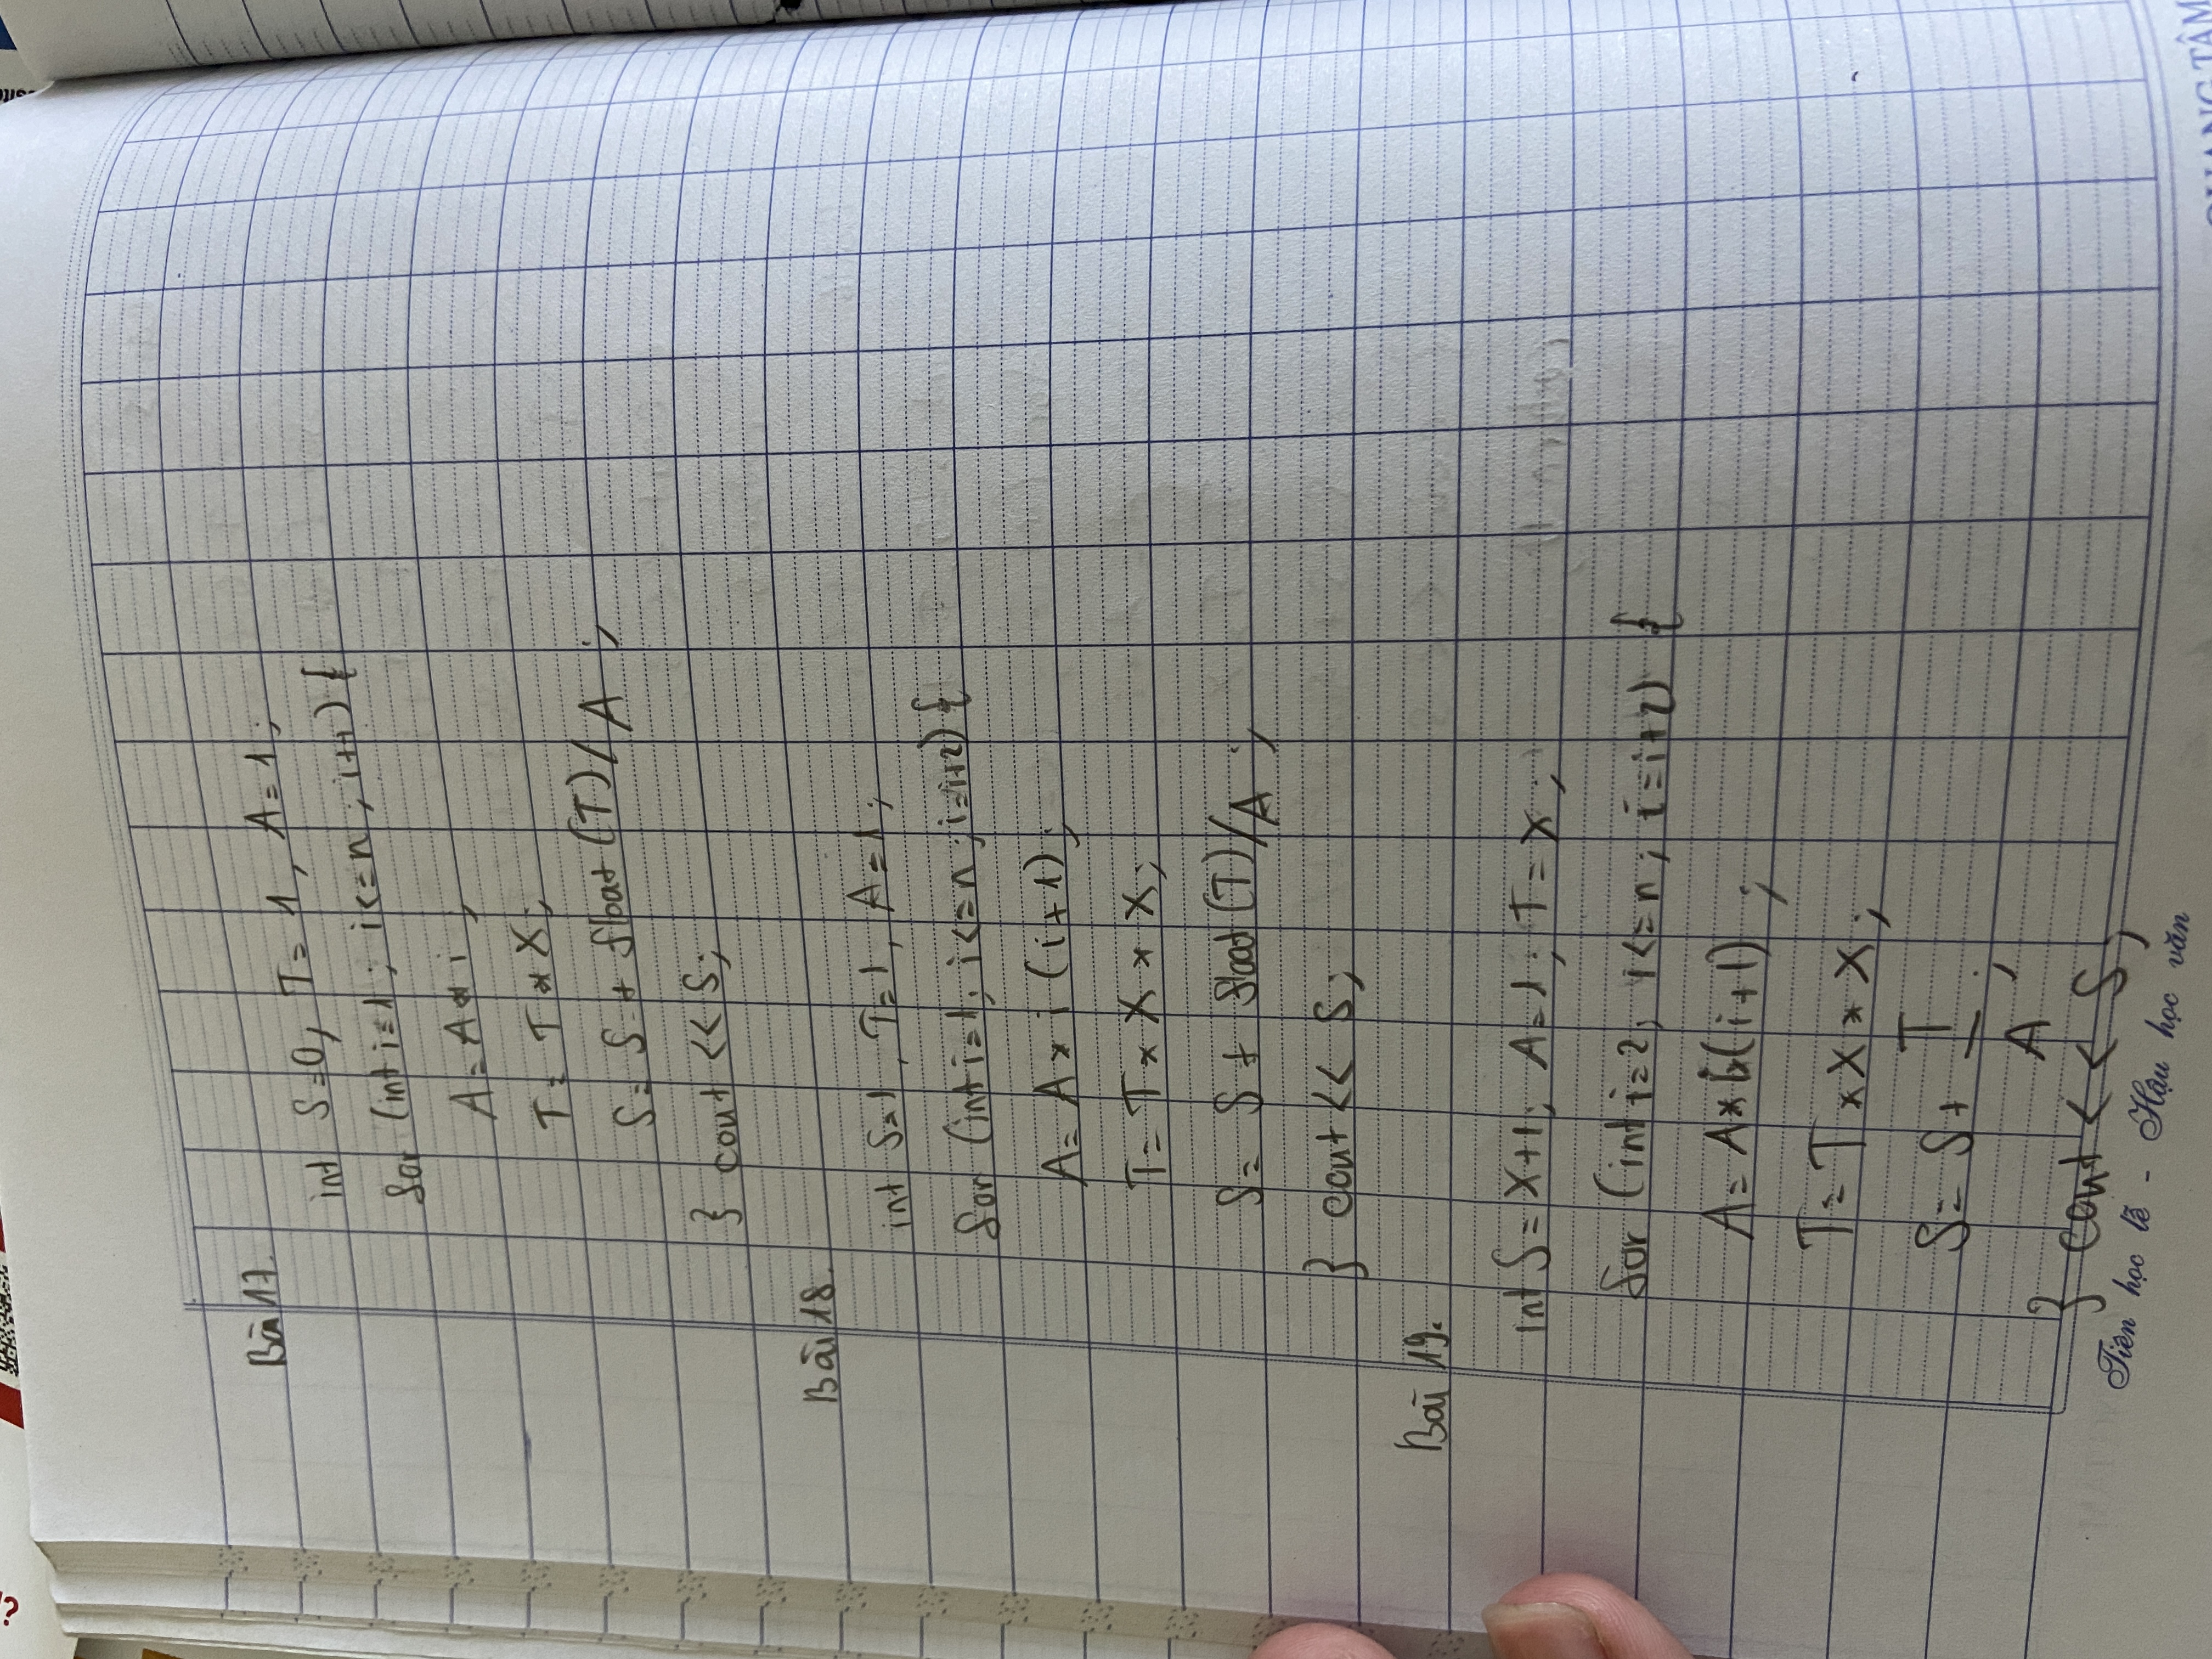 Bài 17.
int S=0, T=1, A=1;
for (int i=1; i<=n; i++) {
A=A*i;
T=T*X;
S=S+float(T)/A;
} cout<<S;
Bài 18.
int S=1, T=1, A=1;
for (int i=1; i<=n; i=i+2) {
A=A*i(i+1);
T=T*X*X;
S=S+float(T)/A;
} cout<<S;
Bài 19.
int S=X+1; A=1; T=X;
for (int i=2; i<=n; i=i+2) {
A=A*i(i+1);
T=T*X*X;
S=S+T/A;
} cout<<S;
Tiên học lễ - Hậu học văn